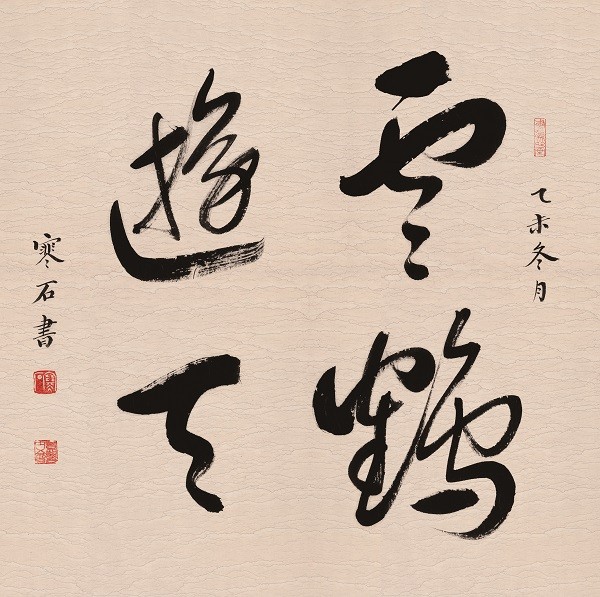 乙未冬月
雲鶴
遊天
寒石書